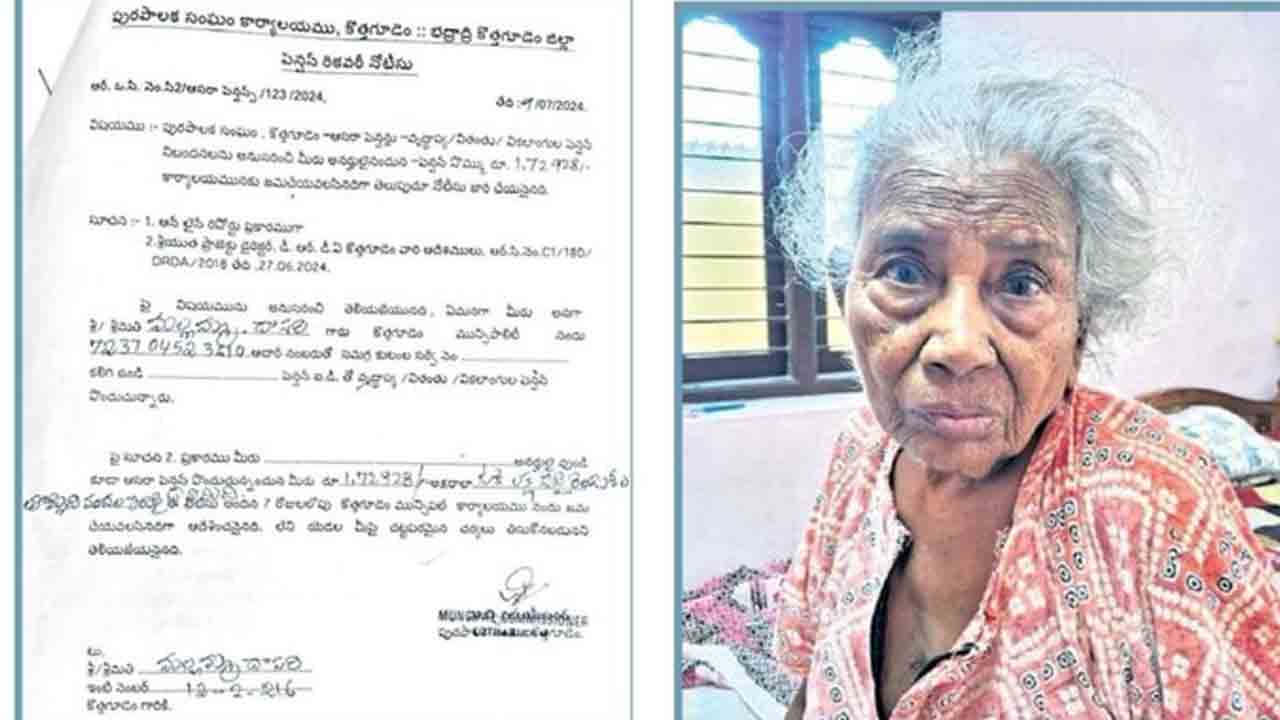 పురపాలక సంఘం కార్యాలయము, కొత్తగూడెం :: భద్రాద్రి కొత్తగూడెం జిల్లా
పెన్షన్ రికవరీ నోటీసు
ఆర్. ఒ.సి. నెం.సి2/ఆసరా పెన్షన్స్ /123 /2024,
తేది : /07/2024.
విషయము :- పురపాలక సంఘం , కొత్తగూడెం -ఆసరా పెన్షన్లు -వృద్ధాప్య/వితంతు/ వికలాంగుల పెన్షన్
నిబంధనలను అనుసరించి మీరు అనర్హులైనందున -పెన్షన్ సొమ్ము రూ. 1,72,928/-
కార్యాలయమునకు జమచేయవలసినదిగా తెలుపుచూ నోటీసు జారి చేయనైనది.
సూచన :- 1. ఆన్ లైన్ రిపోర్టు ప్రకారముగా
2.శ్రీయుత ప్రాజెక్టు డైరెక్టర్, డి. ఆర్. డి.ఏ కొత్తగూడెం వారి ఆదేశములు, ఆర్.సి.నెం.C1/180/
DRDA/2018 తేది .27.06.2024.
పై విషయమును అనుసరించి తెలియజేయునది, ఏమనగా మీరు అనగా
శ్రీ/ శ్రీమతి దాసరి గారు కొత్తగూడెం మున్సిపాలిటీ నందు
7237 0452 3210 ఆధార్ నంబరుతో సమగ్ర కుటుంబ సర్వే నెం
కలిగి ఉండి పెన్షన్ ఐ.డి. తో వృద్ధాప్య /వితంతు /వికలాంగుల పెన్షన్
పొందుచున్నారు.
పై సూచిన 2. ప్రకారము మీరు అనర్హులై వుండి
కూడా ఆసరా పెన్షన్ పొందుచున్నందున మీరు రూ 1,72,928/- అక్షరాలా
అందిన 7 రోజులలోపు కొత్తగూడెం మున్సిపల్ కార్యాలయము నందు జమ
చేయవలసినదిగా ఆదేశించనైనది. లేని యెడల మీపై చట్టపరమైన చర్యలు తీసుకోనబడునని
తెలియజేయనైనది.
MUNICIPAL COMMISSIONER
కొత్తగూడెం.
టు,
శ్రీ/శ్రీమతి దాసరి
ఇంటి నెంబర్ 12-2-216
కొత్తగూడెం గారికి.